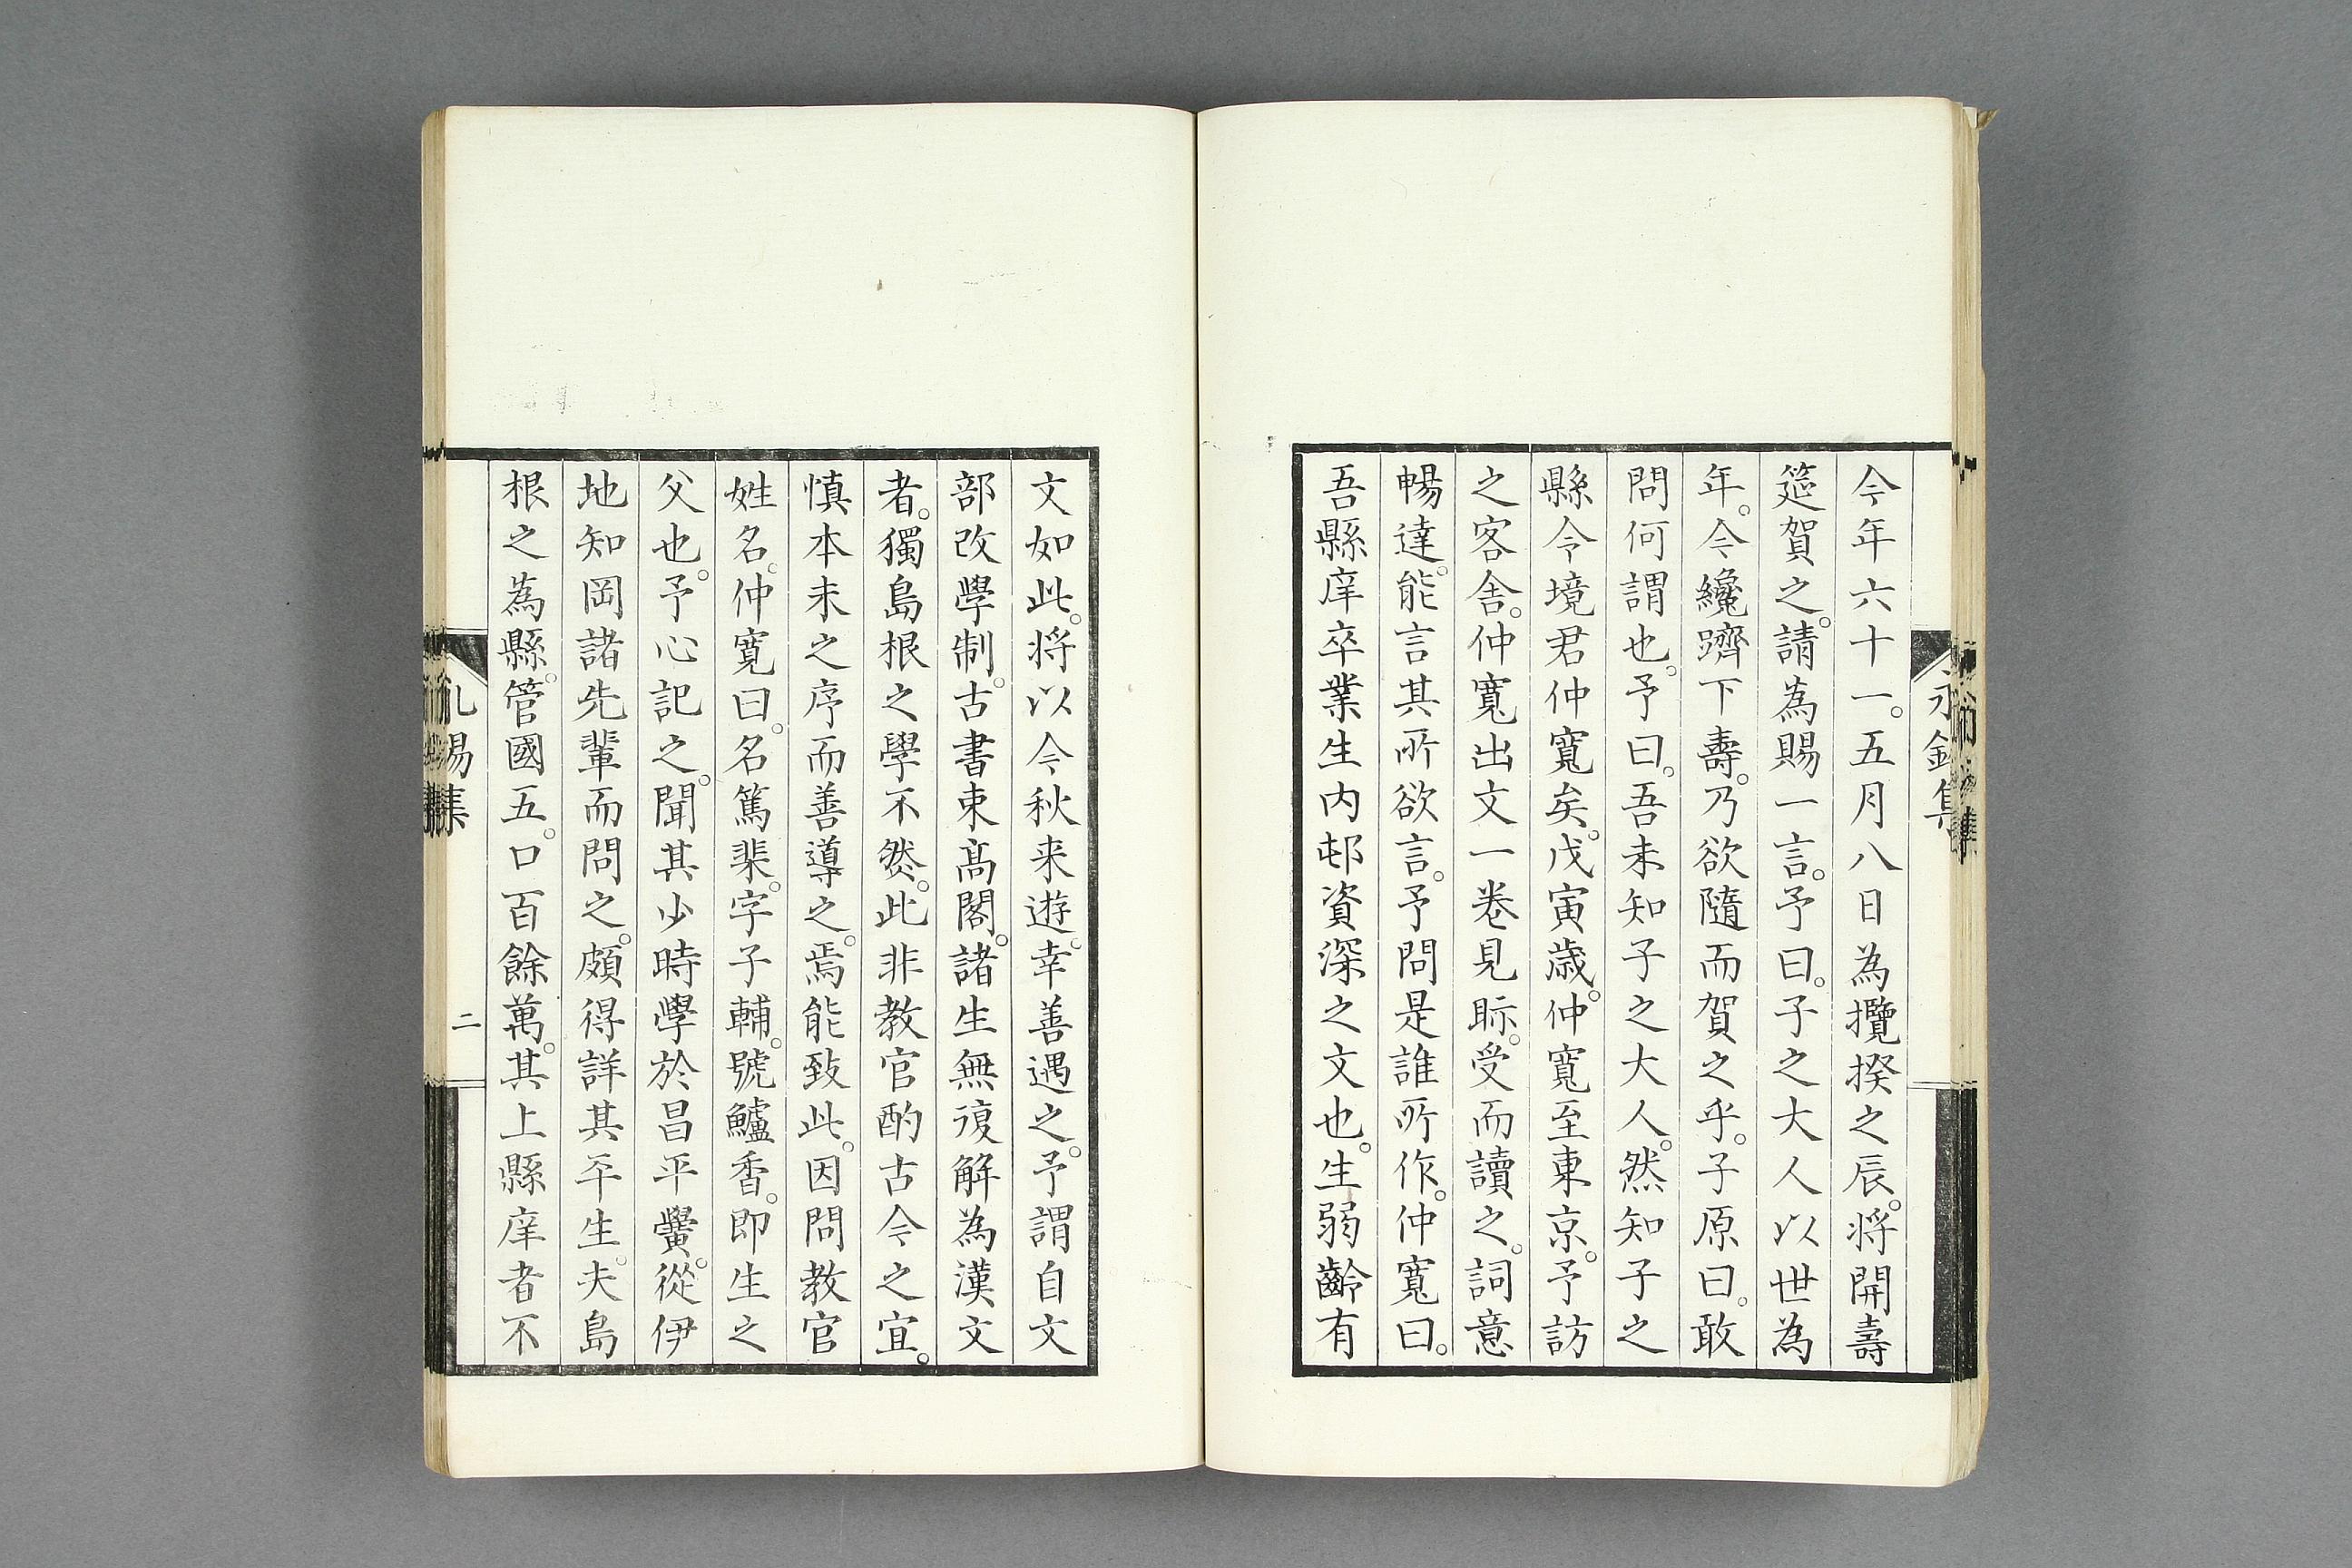 今年六十一。五月八日為攬揆之辰。将開壽
筵賀之。請為賜一言。予曰。子之大人以世為
年。今纔躋下壽。乃欲隨而賀之乎。子原曰。敢
問何謂也。予曰。吾未知子之大人。然知子之
縣令境君仲寬矣。戊寅歳。仲寬至東京。予訪
之客舎。仲寬出文一卷見眎。受而讀之。詞意
暢達。能言其所欲言。予問是誰所作。仲寬曰。
吾縣庠卒業生内邨資深之文也。生弱齡有
文如此。将以今秋来遊。幸善遇之。予謂自文
部改學制。古書束髙閣。諸生無復解為漢文
者。獨島根之學不然。此非教官酌古今之宜。
慎本末之序而善導之。焉能致此。因問教官
姓名。仲寬曰。名篤棐。字子輔。號鱸香。即生之
父也。予心記之。聞其少時學於昌平黌。從伊
地知岡諸先輩而問之。頗得詳其平生。夫島
根之為縣。管國五。口百餘萬。其上縣庠者不
二